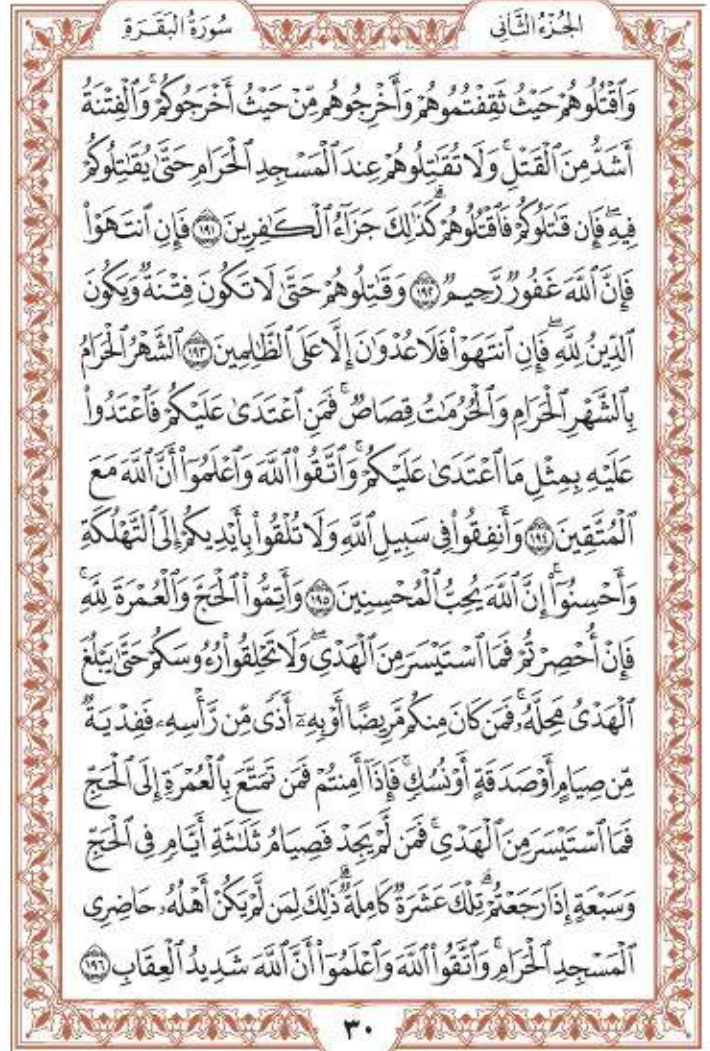 الجُزْءُ الثَّانِي سُورَةُ الْبَقَرَةِ
وَٱقْتُلُوهُمْ حَيْثُ ثَقِفْتُمُوهُمْ وَأَخْرِجُوهُم مِّنْ حَيْثُ أَخْرَجُوكُمْ ۚ وَٱلْفِتْنَةُ
أَشَدُّ مِنَ ٱلْقَتْلِ ۚ وَلَا تُقَٰتِلُوهُمْ عِندَ ٱلْمَسْجِدِ ٱلْحَرَامِ حَتَّىٰ يُقَٰتِلُوكُمْ
فِيهِ ۖ فَإِن قَٰتَلُوكُمْ فَٱقْتُلُوهُمْ ۗ كَذَٰلِكَ جَزَآءُ ٱلْكَٰفِرِينَ ١٩١ فَإِنِ ٱنتَهَوْا۟
فَإِنَّ ٱللَّهَ غَفُورٌ رَّحِيمٌ ١٩٢ وَقَٰتِلُوهُمْ حَتَّىٰ لَا تَكُونَ فِتْنَةٌ وَيَكُونَ
ٱلدِّينُ لِلَّهِ ۖ فَإِنِ ٱنتَهَوْا۟ فَلَا عُدْوَٰنَ إِلَّا عَلَى ٱلظَّٰلِمِينَ ١٩٣ ٱلشَّهْرُ ٱلْحَرَامُ
بِٱلشَّهْرِ ٱلْحَرَامِ وَٱلْحُرُمَٰتُ قِصَاصٌ ۚ فَمَنِ ٱعْتَدَىٰ عَلَيْكُمْ فَٱعْتَدُوا۟
عَلَيْهِ بِمِثْلِ مَا ٱعْتَدَىٰ عَلَيْكُمْ ۚ وَٱتَّقُوا۟ ٱللَّهَ وَٱعْلَمُوٓا۟ أَنَّ ٱللَّهَ مَعَ
ٱلْمُتَّقِينَ ١٩٤ وَأَنفِقُوا۟ فِى سَبِيلِ ٱللَّهِ وَلَا تُلْقُوا۟ بِأَيْدِيكُمْ إِلَى ٱلتَّهْلُكَةِ
وَأَحْسِنُوٓا۟ ۛ إِنَّ ٱللَّهَ يُحِبُّ ٱلْمُحْسِنِينَ ١٩٥ وَأَتِمُّوا۟ ٱلْحَجَّ وَٱلْعُمْرَةَ لِلَّهِ ۚ
فَإِنْ أُحْصِرْتُمْ فَمَا ٱسْتَيْسَرَ مِنَ ٱلْهَدْىِ ۖ وَلَا تَحْلِقُوا۟ رُءُوسَكُمْ حَتَّىٰ يَبْلُغَ
ٱلْهَدْىُ مَحِلَّهُۥ ۚ فَمَن كَانَ مِنكُم مَّرِيضًا أَوْ بِهِۦٓ أَذًى مِّن رَّأْسِهِۦ فَفِدْيَةٌ
مِّن صِيَامٍ أَوْ صَدَقَةٍ أَوْ نُسُكٍ ۚ فَإِذَآ أَمِنتُمْ فَمَن تَمَتَّعَ بِٱلْعُمْرَةِ إِلَى ٱلْحَجِّ
فَمَا ٱسْتَيْسَرَ مِنَ ٱلْهَدْىِ ۚ فَمَن لَّمْ يَجِدْ فَصِيَامُ ثَلَٰثَةِ أَيَّامٍ فِى ٱلْحَجِّ
وَسَبْعَةٍ إِذَا رَجَعْتُمْ ۗ تِلْكَ عَشَرَةٌ كَامِلَةٌ ۗ ذَٰلِكَ لِمَن لَّمْ يَكُنْ أَهْلُهُۥ حَاضِرِى
ٱلْمَسْجِدِ ٱلْحَرَامِ ۚ وَٱتَّقُوا۟ ٱللَّهَ وَٱعْلَمُوٓا۟ أَنَّ ٱللَّهَ شَدِيدُ ٱلْعِقَابِ ١٩٦
٣٠